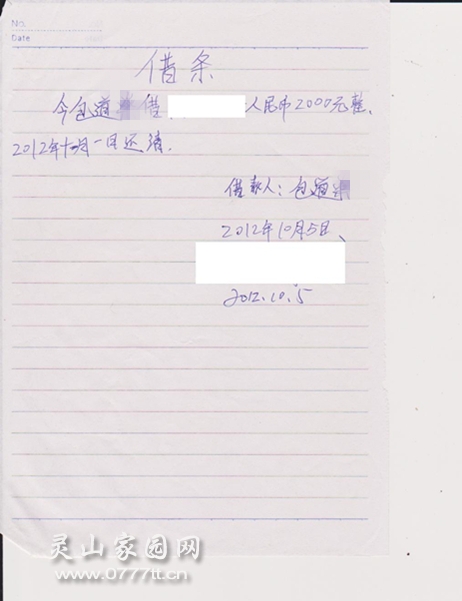 No.
Date
借条
今包道 借 人民币2000元整、
2012年十月一日还清.
借款人：包道
2012年10月5日、
2012.10.5
灵山家园网
www.0777tt.cn